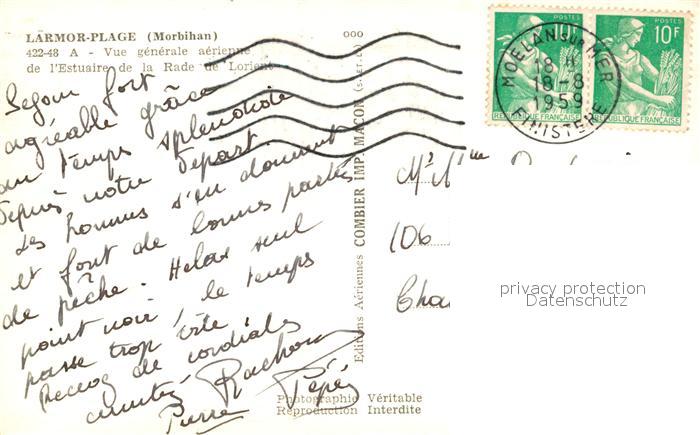 LARMOR-PLAGE (Morbihan)
422-48 A - Vue générale aérienne
de l'Estuaire de la Rade de Lorient
ooo
Séjour fort
agréable grâce
au temps splendide
depuis notre départ.
Les hommes s'en donnent
et font de bonnes parties
de pêche. Hélas seul
point noir, le temps
passe trop vite
Recevez de cordiales
amitiés
Pierre Pépé
Editions Aériennes COMBIER IMP. MACON
Photographie Véritable
Reproduction Interdite
POSTES
POSTES
10F
REPUBLIQUE FRANÇAISE
REPUBLIQUE FRANÇAISE
MOELAN SUR MER
18 H
18-8
1959
FINISTERE
106
privacy protection
Datenschutz